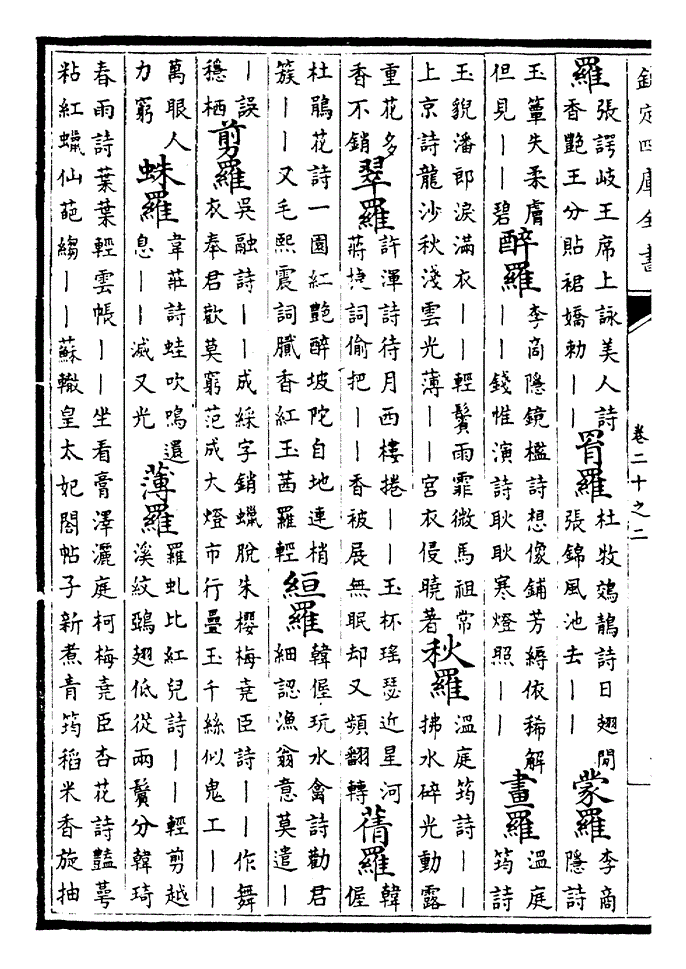 欽定四庫全書 卷二十之二
羅張諤岐王席上詠美人詩香艷王分貼裙嬌勅丨丨罥羅杜牧鵁鶄詩日翅閒張錦風池去丨丨蒙羅李商隱詩
玉簟失柔膚但見丨丨碧醉羅李商隱鏡檻詩想像鋪芳縟依稀解丨丨錢惟演詩耿耿寒燈照丨丨畫羅溫庭筠詩
玉貌潘郎淚滿衣丨丨輕鬢雨霏微馬祖常上京詩龍沙秋淺雲光薄丨丨宮衣侵曉著秋羅溫庭筠詩丨丨拂水碎光動露
重花多香不銷翠羅許渾詩待月西樓捲丨丨玉杯瑤瑟近星河蔣捷詞偷把丨丨香被展無眠却又頻翻轉蒨羅韓偓
杜鵑花詩一園紅艷醉坡陀自地連梢簇丨丨又毛熙震詞膩香紅玉茜羅輕絙羅韓偓玩水禽詩勸君細認漁翁意莫遣丨
丨誤穩栖剪羅吳融詩丨丨成綵字銷蠟脫朱櫻梅堯臣詩丨丨作舞衣奉君歡莫窮范成大燈市行疊玉千絲似鬼工丨丨
萬眼人力窮蛛羅韋莊詩蛙吹鳴還息丨丨滅又光薄羅羅虬比紅兒詩丨丨輕剪越溪紋鵶翅低從兩鬢分韓琦
春雨詩葉葉輕雲帳丨丨坐看膏澤灑庭柯梅堯臣杏花詩豔萼粘紅蠟仙葩縐丨丨蘇轍皇太妃閣帖子新煮青筠稻米香旋抽